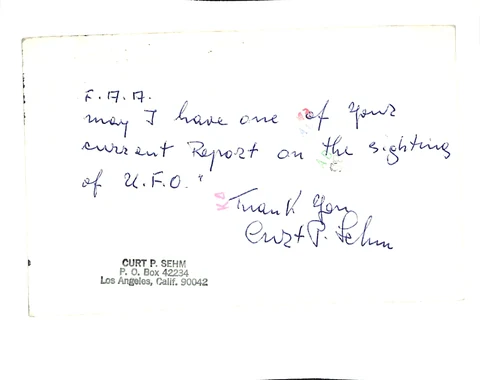 F.A.A.
may I have one of your
current Report on the sighting
of U.F.O."
Thank You
Curt P. Sehm
CURT P. SEHM
P. O. Box 42234
Los Angeles, Calif. 90042